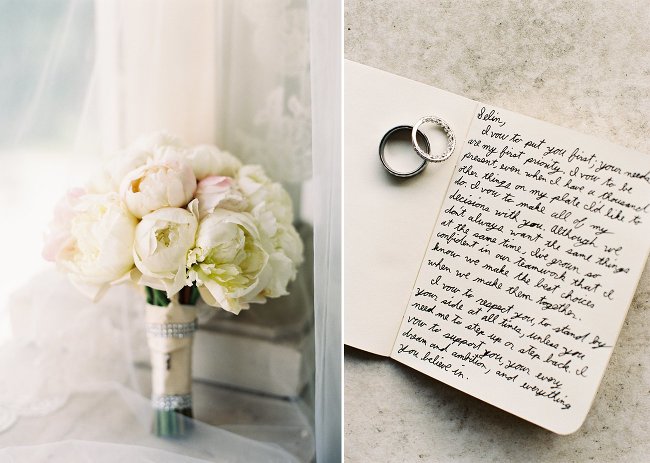 Selin,
I vow to put you first; your needs
are my first priority. I vow to be
present, even when I have a thousand
other things on my plate I'd like to
do. I vow to make all of my
decisions with you. Although we
don't always want the same things
at the same time, I've grown so
confident in our teamwork that I
know we make the best choices
when we make them together.
I vow to respect you, to stand by
your side at all times, unless you
need me to step up or step back. I
vow to support you, your every
dream and ambition, and everything
you believe in.